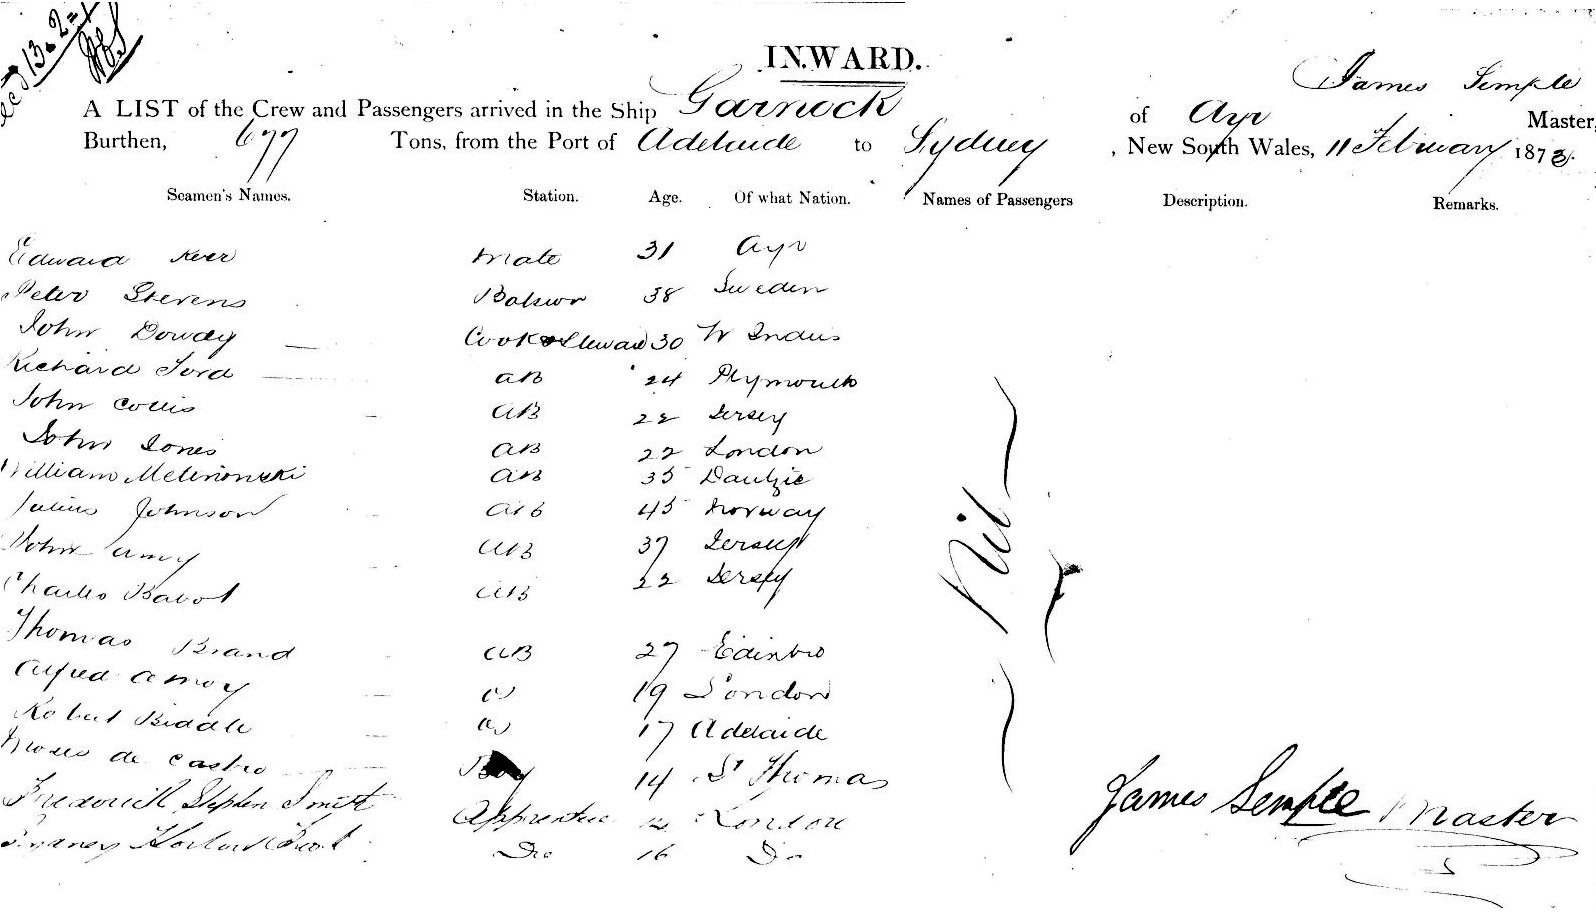 Recd 13.2
INWARD.
A LIST of the Crew and Passengers arrived in the Ship Garnock of Ayr James Semple Master,
Burthen, 677 Tons, from the Port of Adelaide to Sydney, New South Wales, 11 February 1873.
Seamen's Names. Station. Age. Of what Nation. Names of Passengers Description. Remarks.
Edward Kerr Mate 31 Ayr
Peter Stevens Botswn 38 Sweden
John Dowdy Cook & Steward 30 W Indies
Richard Ford AB 24 Plymouth
John Collis AB 22 Jersey
John Jones AB 22 London
William AB 35 Dantzic
Julius Johnson AB 45 Norway
John Amy AB 37 Jersey
Charles Babot AB 22 Jersey
Nil
Thomas Brand AB 27 Edinbro
Alfred Amoy OS 19 London
Robert Biddle OS 17 Adelaide
Moses de Castro Boy 14 St Thomas
Frederick Stephen Smith Apprentice London
Do 16 Do
James Semple Master